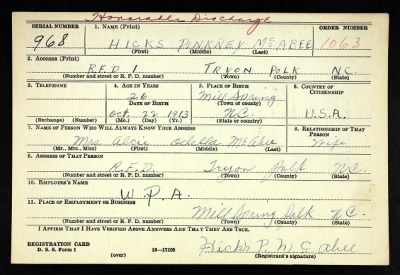 Honorable Discharge
SERIAL NUMBER 1. NAME (Print) ORDER NUMBER
968 HICKS PINKNEY McABEE 1063
(First) (Middle) (Last)
2. ADDRESS (Print)
R.F.D. 1 TRYON POLK N.C.
(Number and street or R. F. D. number) (Town) (County) (State)
3. TELEPHONE 4. AGE IN YEARS 5. PLACE OF BIRTH 6. COUNTRY OF CITIZENSHIP
26 Mill Spring
DATE OF BIRTH N.C. U.S.A.
Oct. 22 1913
(Exchange) (Number) (Mo.) (Day) (Yr.) (State or country)
7. NAME OF PERSON WHO WILL ALWAYS KNOW YOUR ADDRESS 8. RELATIONSHIP OF THAT PERSON
Mrs. McAbee Wife
(Mr., Mrs., Miss) (First) (Middle) (Last)
9. ADDRESS OF THAT PERSON
R.F.D. Tryon Polk N.C.
(Number and street or R. F. D. number) (Town) (County) (State)
10. EMPLOYER'S NAME
W.P.A.
11. PLACE OF EMPLOYMENT OR BUSINESS
Mill Spring Polk N.C.
(Number and street or R. F. D. number) (Town) (County) (State)
I AFFIRM THAT I HAVE VERIFIED ABOVE ANSWERS AND THAT THEY ARE TRUE.
REGISTRATION CARD
D. S. S. Form 1 16—17105 Hicks P. McAbee
(over) (Registrant's signature)